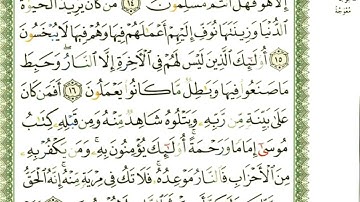 إِلَّا هُوَ فَهَلْ أَنتُم مُّسْلِمُونَ ١٤ مَن كَانَ يُرِيدُ الْحَيَوٰةَ
الدُّنْيَا وَزِينَتَهَا نُوَفِّ إِلَيْهِمْ أَعْمَٰلَهُمْ فِيهَا وَهُمْ فِيهَا لَا يُبْخَسُونَ
١٥ أُوْلَٰٓئِكَ الَّذِينَ لَيْسَ لَهُمْ فِي الْأَخِرَةِ إِلَّا النَّارُ ۖ وَحَبِطَ
مَا صَنَعُوا۟ فِيهَا وَبَٰطِلٌ مَّا كَانُوا۟ يَعْمَلُونَ ١٦ أَفَمَن كَانَ
عَلَىٰ بَيِّنَةٍ مِّن رَّبِّهِۦ وَيَتْلُوهُ شَاهِدٌ مِّنْهُ وَمِن قَبْلِهِۦ كِتَٰبُ
مُوسَىٰٓ إِمَامًا وَرَحْمَةً ۚ أُوْلَٰٓئِكَ يُؤْمِنُونَ بِهِۦ ۚ وَمَن يَكْفُرْ بِهِۦ
مِنَ الْأَحْزَابِ فَالنَّارُ مَوْعِدُهُۥ ۚ فَلَا تَكُ فِي مِرْيَةٍ مِّنْهُ ۚ إِنَّهُ الْحَقُّ